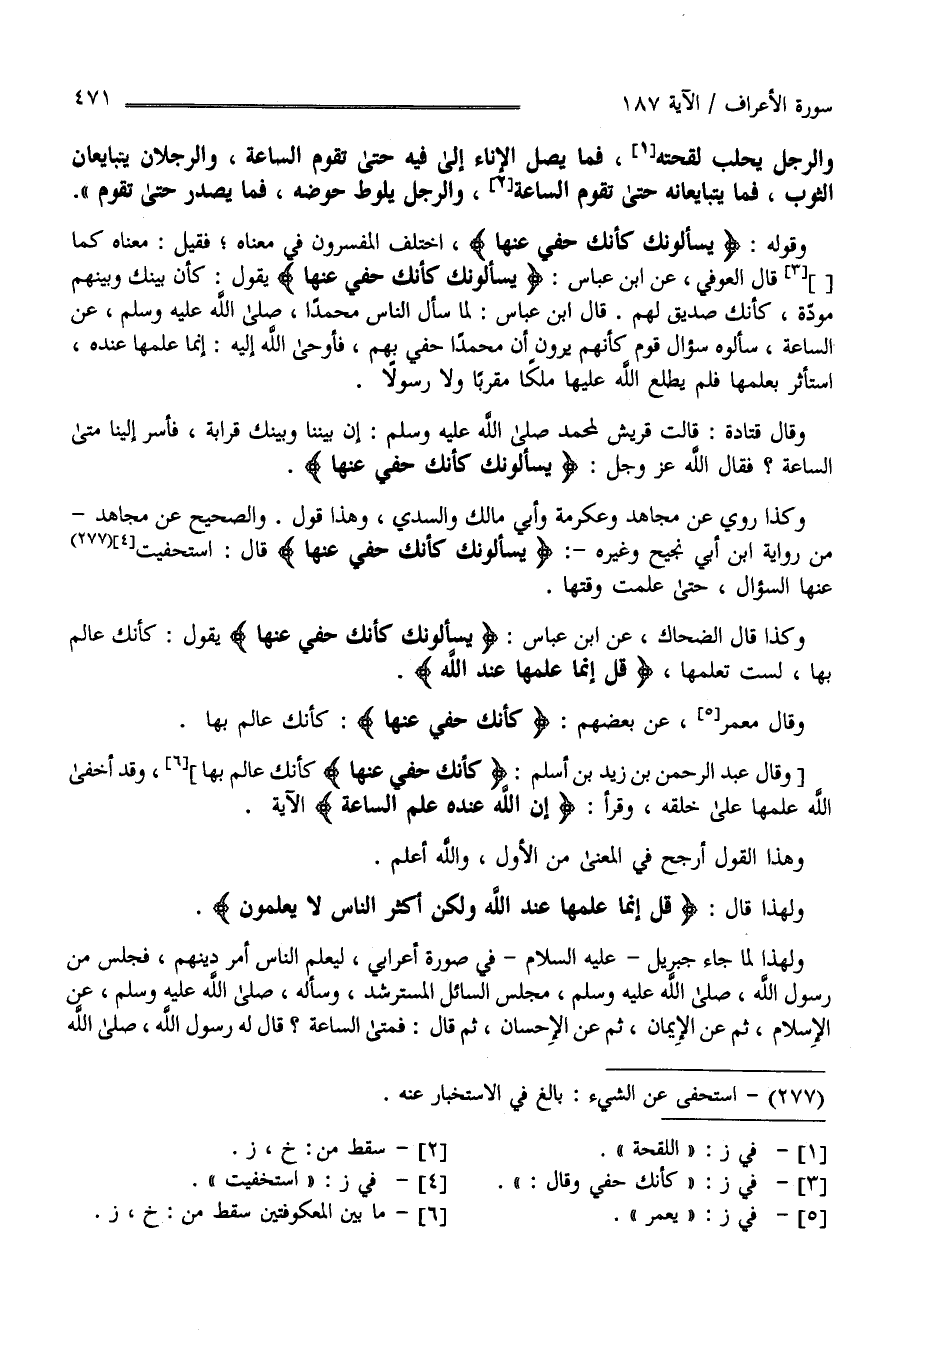 سورة الأعراف / الآية ١٨٧ ٤٧١
والرجل يحلب لقحته[١] ، فما يصل الإناء إلىٰ فيه حتىٰ تقوم الساعة ، والرجلان يتبايعان
الثوب ، فما يتبايعانه حتىٰ تقوم الساعة[٢] ، والرجل يلوط حوضه ، فما يصدر حتىٰ تقوم » .
وقوله : ﴿ يسألونك كأنك حفي عنها ﴾ ، اختلف المفسرون في معناه ؛ فقيل : معناه كما
[ ][٣] قال العوفي ، عن ابن عباس : ﴿ يسألونك كأنك حفي عنها ﴾ يقول : كأن بينك وبينهم
مودّة ، كأنك صديق لهم . قال ابن عباس : لما سأل الناس محمدًا ، صلىٰ اللَّه عليه وسلم ، عن
الساعة ، سألوه سؤال قوم كأنهم يرون أن محمدًا حفي بهم ، فأوحىٰ اللَّه إليه : إنما علمها عنده ،
استأثر بعلمها فلم يطلع اللَّه عليها ملكًا مقربًا ولا رسولًا .
وقال قتادة : قالت قريش لمحمد صلىٰ اللَّه عليه وسلم : إن بيننا وبينك قرابة ، فأسر إلينا متىٰ
الساعة ؟ فقال اللَّه عز وجل : ﴿ يسألونك كأنك حفي عنها ﴾ .
وكذا روي عن مجاهد وعكرمة وأبي مالك والسدي ، وهذا قول . والصحيح عن مجاهد -
من رواية ابن أبي نجيح وغيره -: ﴿ يسألونك كأنك حفي عنها ﴾ قال : استحفيت[٤](٢٧٧)
عنها السؤال ، حتىٰ علمت وقتها .
وكذا قال الضحاك ، عن ابن عباس : ﴿ يسألونك كأنك حفي عنها ﴾ يقول : كأنك عالم
بها ، لست تعلمها ، ﴿ قل إنما علمها عند اللَّه ﴾ .
وقال معمر[٥] ، عن بعضهم : ﴿ كأنك حفي عنها ﴾ : كأنك عالم بها .
[ وقال عبد الرحمن بن زيد بن أسلم : ﴿ كأنك حفي عنها ﴾ كأنك عالم بها ][٦] ، وقد أخفىٰ
اللَّه علمها علىٰ خلقه ، وقرأ : ﴿ إن اللَّه عنده علم الساعة ﴾ الآية .
وهذا القول أرجح في المعنىٰ من الأول ، واللَّه أعلم .
ولهذا قال : ﴿ قل إنما علمها عند اللَّه ولكن أكثر الناس لا يعلمون ﴾ .
ولهذا لما جاء جبريل - عليه السلام - في صورة أعرابي ، ليعلم الناس أمر دينهم ، فجلس من
رسول اللَّه ، صلىٰ اللَّه عليه وسلم ، مجلس السائل المسترشد ، وسأله ، صلىٰ اللَّه عليه وسلم ، عن
الإسلام ، ثم عن الإيمان ، ثم عن الإحسان ، ثم قال : فمتىٰ الساعة ؟ قال له رسول اللَّه ، صلىٰ اللَّه
(٢٧٧) - استحفى عن الشيء : بالغ في الاستخبار عنه .
[١] - في ز : « اللقحة » . [٢] - سقط من : خ ، ز .
[٣] - في ز : « كأنك حفي وقال : » . [٤] - في ز : « استخفيت » .
[٥] - في ز : « يعمر » . [٦] - ما بين المعكوفتين سقط من : خ ، ز .